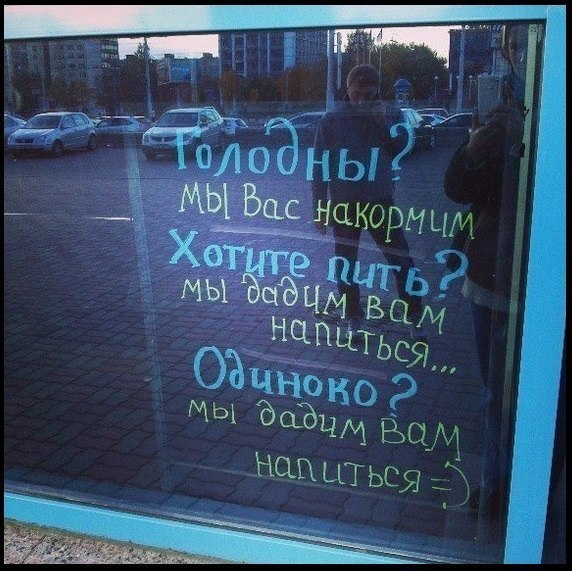 Голодны?
мы Вас накормим
Хотите пить?
мы дадим вам
напиться...
Одиноко?
мы дадим Вам
напиться =)